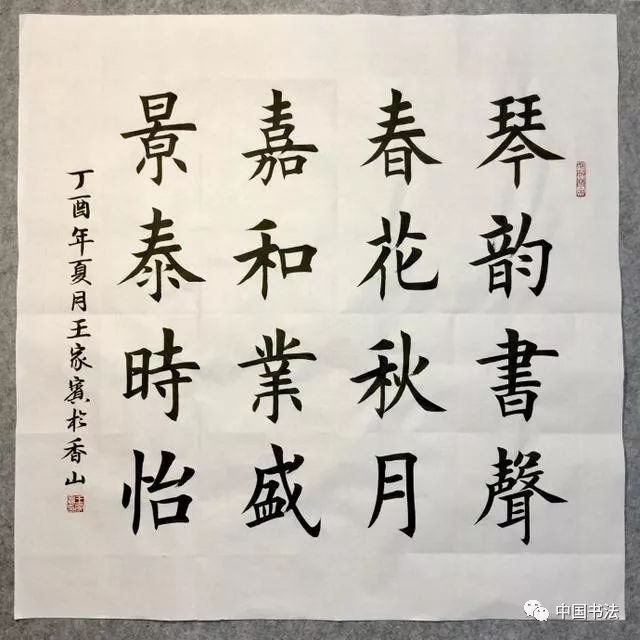 琴韵書聲
春花秋月
嘉和業盛
景泰時怡
丁酉年夏月王家賓於香山
中国书法